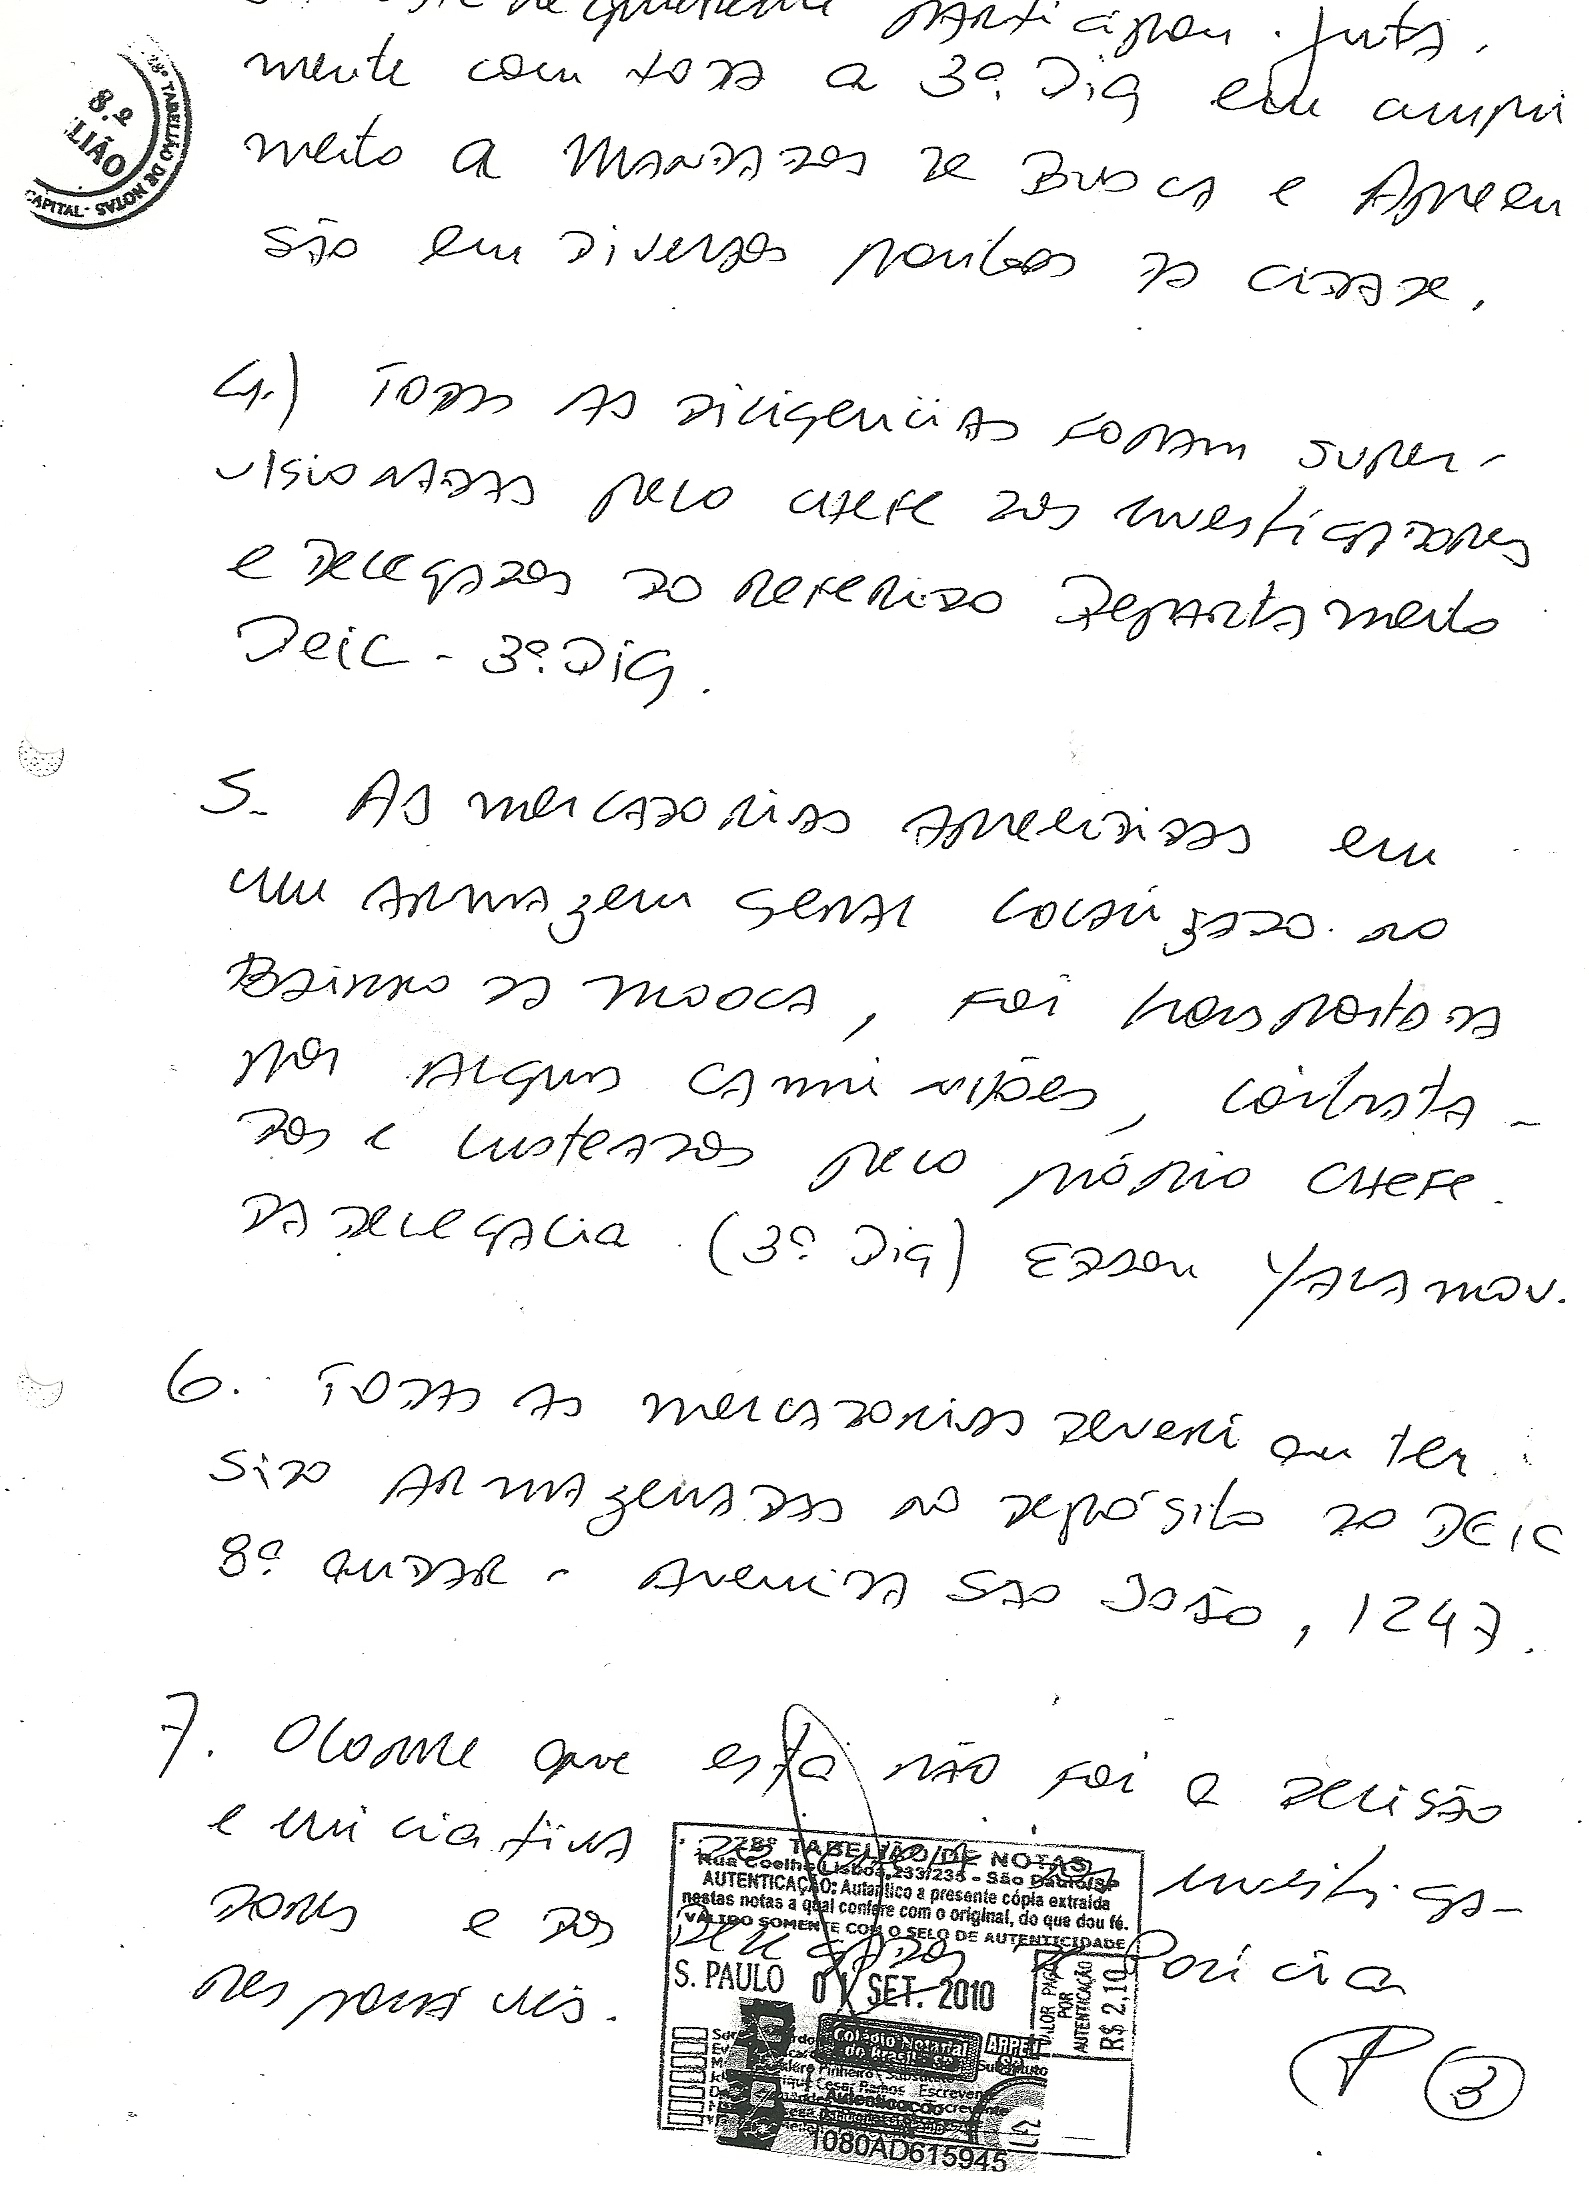 requerente participou junta-
mente com toda a 3ª. Dig em cumpri
mento a mandados de Busca e Apreen
são em diversos pontos da cidade.
4.) Todas as diligencias foram super-
visionadas pelo chefe dos investigadores
e delegados do referido Departamento
Deic - 3ª. Dig.
5- As mercadorias apreendidas em
um armazem geral localizado no
Bairro da Mooca, foi transportada
por alguns caminhões, contrata-
dos e custeados pelo próprio chefe
da delegacia (3ª. Dig) Edson
6. Todas as mercadorias deveriam ter
sido armazenadas no depósito do DEIC
8º andar - Avenida São João, 1247.
7. Ocorre que está não foi a decisão
e iniciativa investiga-
dores e dos Delegados de Polícia
responsáveis.
3
8.º
LIÃO
28º TABELIÃO DE NOTAS
CAPITAL-
28º TABELIÃO DE NOTAS
Rua Coelho Lisboa, 233/235 - São Paulo/SP
AUTENTICAÇÃO: Autentico a presente cópia extraída
nestas notas a qual confere com o original, do que dou fé.
VÁLIDO SOMENTE COM O SELO DE AUTENTICIDADE
S. PAULO 01 SET. 2010
VALOR PAGO
POR
AUTENTICAÇÃO
R$ 2,10
Colégio Notarial
do Brasil - SP
Autenticação
1080AD615945